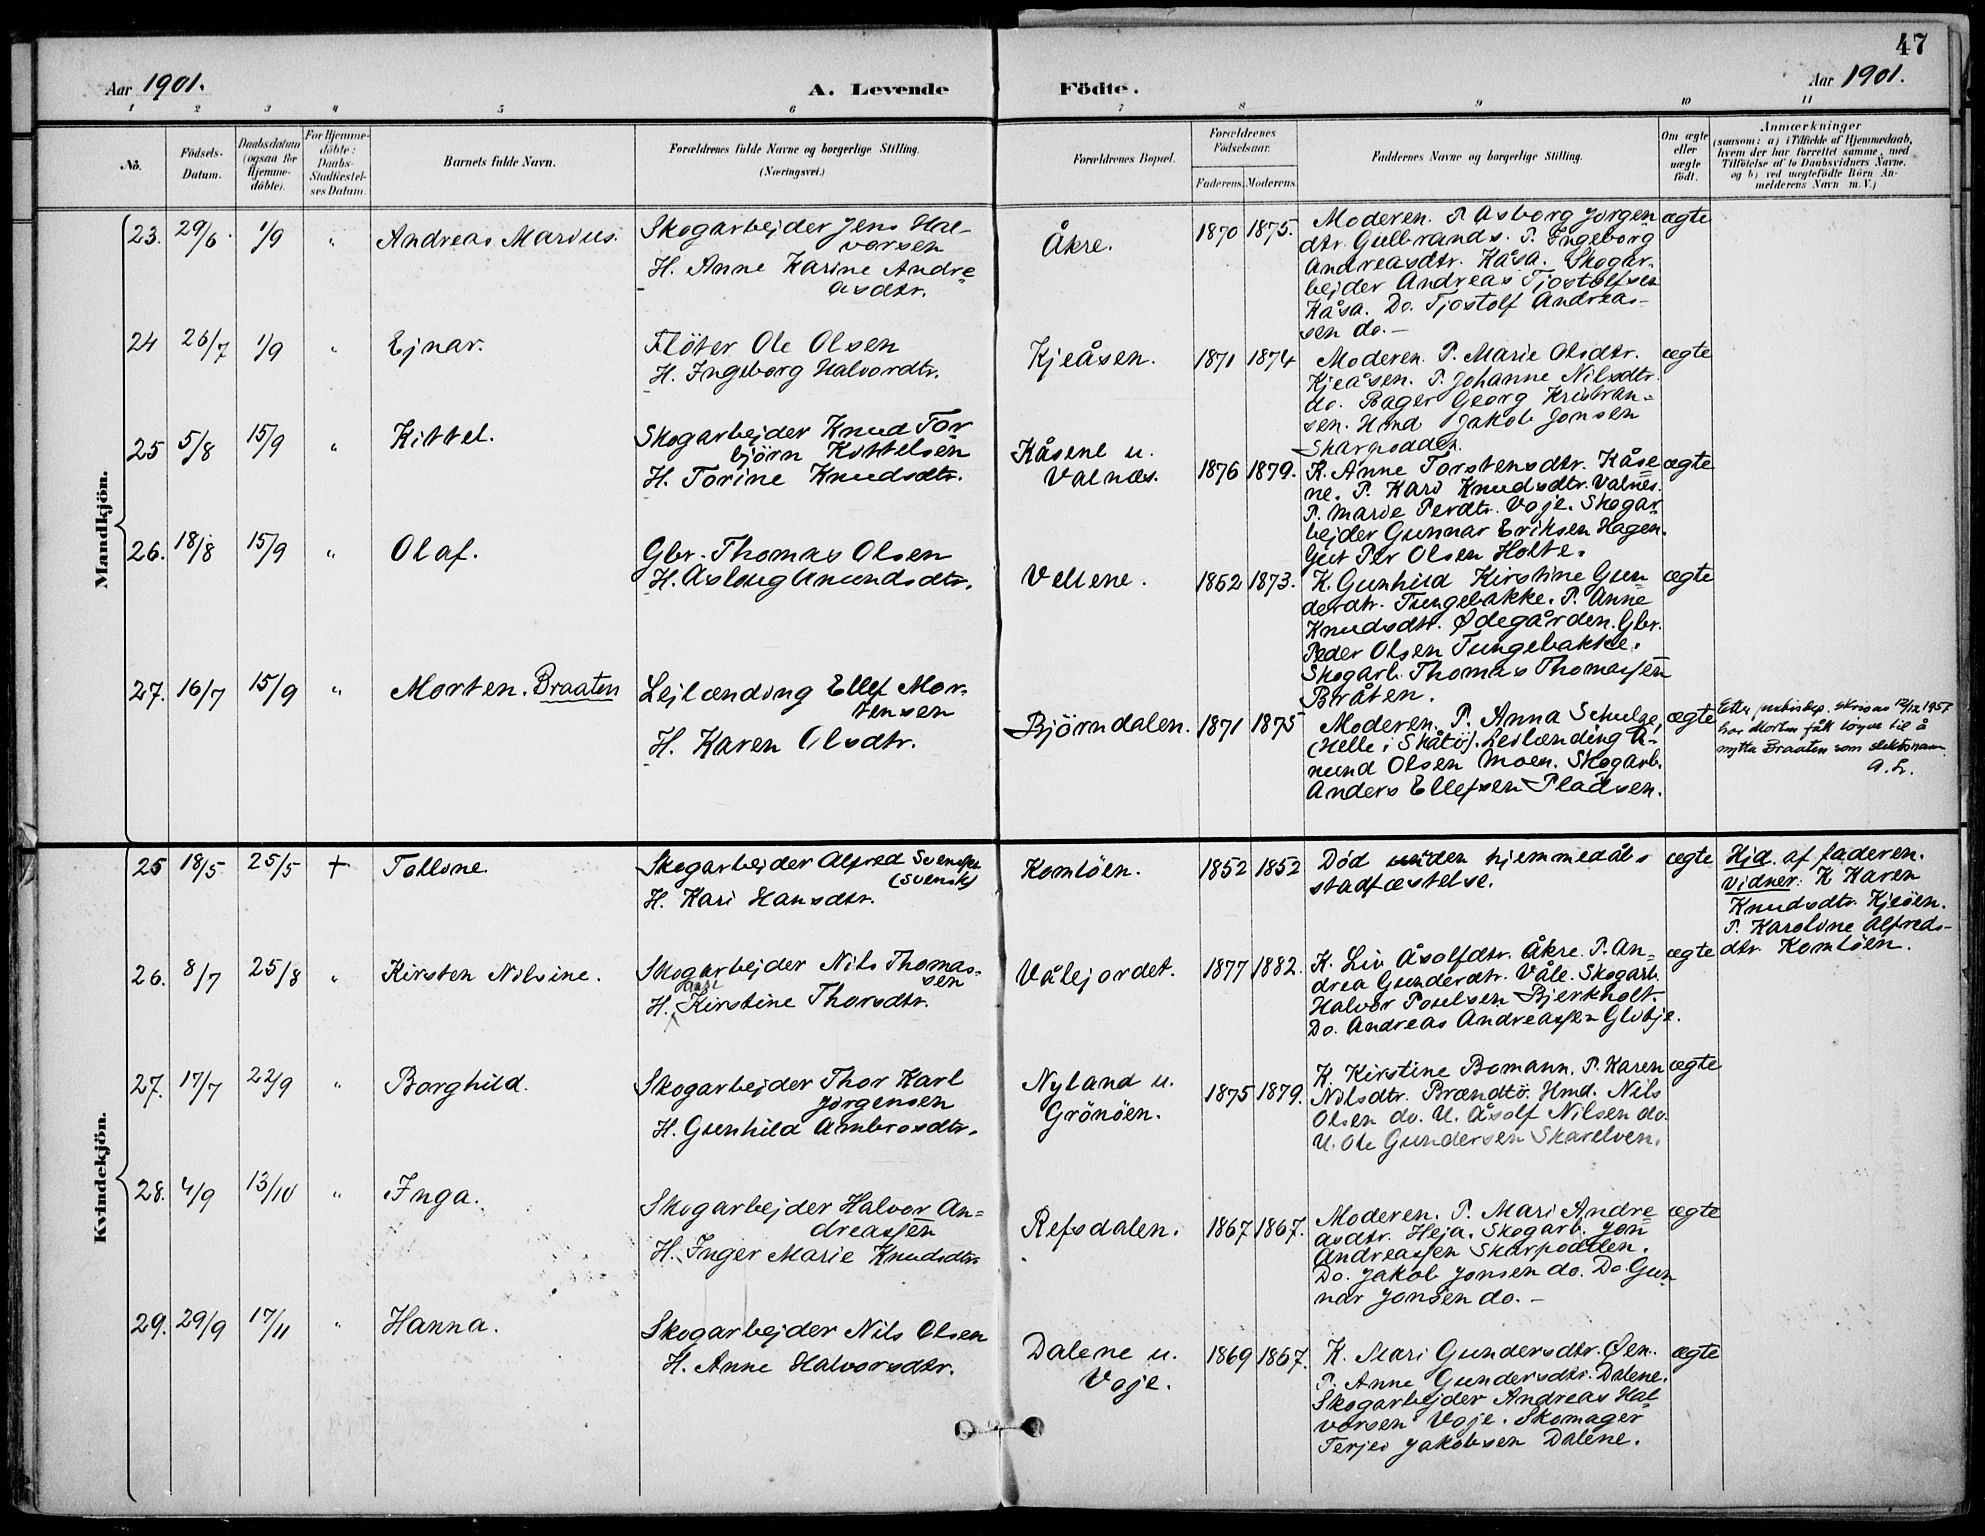 47
Aar 1901. A. Levende Födte. Aar 1901.
1 2 3 4 5 6 7 8 9 10 11
No. Födsels-Datum. Daabsdatum (ogsaa for Hjemme-döbte). For Hjemme-döbte: Daabs-Stadfæstel-ses Datum. Barnets fulde Navn. Forældrenes fulde Navne og borgerlige Stilling. (Næringsvei.) Forældrenes Bopæl. Forældrenes Födselsaar. Faderens. Moderens. Faddernes Navne og borgerlige Stilling. Om ægte eller uægte födt. Anmærkninger
(saasom: a) i Tilfælde af Hjemmedaab,
hvem der har forrettet samme, med
Tilföielse af to Daabsvidners Navne,
og b) ved uægtefödte Börn An-
melderens Navn m. V.)
Mandkjön.
23. 29/6. 1/9 " Andreas Marius. Skogarbejder Jens Hal-
vorsen
H. Anne Karine Andre
asdtr.
Åkre. 1870 1875. Moderen. P. Asborg Jörgen
dtr. Gulbrands. P. Ingeborg
Andreasdtr. Kåsa. Skogar-
bejder Andreas Tjostolfsen
Kåsa. Do. Tjostolf Andreas-
sen do.-
ægte
24 26/7 1/9 " Ejnar. Flöter Ole Olsen
H. Ingeborg Halvordtr.
Kjeåsen. 1871 1874 Moderen. P. Marie Olsdtr.
Kjeåsen. P. Johanne Nilsdtr.
do. Bager Georg Kristian-
sen. Hmd Jakob Jonsen
Skarpodden.
ægte
25 5/8 15/9 " Kittel. Skogarbejder Knud Tor
björn Kittelsen
H. Torine Knudsdtr.
Kåsene u.
Valnæs.
1876 1879. K. Anne Torstensdtr. Kåse
ne. P. Kari Knudsdtr. Valnes.
P. Marie Perdtr. Voje. Skogar
bejder Gunnar Eriksen Hagen.
Gut Per Olsen Holte.
ægte
26. 18/8 15/9 " Olaf. Gbr. Thomas Olsen
H. Aslaug Amundsdtr.
Vellene. 1852 1873. K. Gunhild Kirstine Gun
derdtr. Tungebakke. P. Anne
Knudsdtr. Ødegården. Gbr.
Peder Olsen Tungebakke.
Skogarb. Thomas Thomassen
Bråten.
ægte
27. 16/7 15/9 " Morten. Braaten Lejlænding Ellef Mor-
tensen
H. Karen Olsdtr.
Björndalen. 1871 1875 Moderen. P. Anna Schulze,
(Helle i Skåtö). Leilænding A-
mund Olsen Moen. Skogarb.
Anders Ellefsen Pladsen.
ægte
1957
har Morten fått løyve til å
nytta Braaten som slektsnamn
Kvindekjön.
25 18/5 25/5 + Tolline. Skogarbejder Alfred Svenske
(svensk)
H. Kari Hansdtr.
Komlöen. 1852 1852 Död inden hjemmedåbs
stadfæstelse.
ægte Hjd. af faderen.
Vidner: K Karen
Knudsdtr. Kjeöen.
P. Karoline Alfreds-
dtr. Komlöen.
26. 8/7 25/8 " Kirsten Nilsine. Skogarbejder Nils Thomas-
sen
H. Kirstine Thorsdtr.
Vålejordet. 1877 1882. K. Liv Åsolfdtr. Åkre. P. An-
drea Gunderdtr. Våle. Skogarb.
Halvor Poulsen Bjerkholt.
Do. Andreas Andreassen Glitje.
ægte
27. 17/7 22/9 " Borghild. Skogarbejder Thor Karl
Jörgensen
H. Gunhild Ambrosdtr.
Nyland u.
Grönöen.
1875 1879. K. Kirstine Bomann. P. Karen
Nilsdtr. Brændtö. Hmd. Nils
Olsen do. U. Åsolf Nilsen do.
U. Ole Gundersen Skarelven.
ægte
28. 4/9 13/10 " Inga. Skogarbejder Halvor An-
dreassen
H. Inger Marie Knudsdtr.
Refsdalen. 1867 1867. Moderen. P. Mari Andre
asdtr. Heja. Skogarb. Jon
Andreassen Skarpodden.
Do. Jakob Jonsen do. Do. Gun
nar Jonsen do.-
ægte
29. 29/9 17/11 " Hanna. Skogarbejder Nils Olsen
H. Anne Halvorsdtr.
Dalene u.
Voje.
1869 1867. K. Mari Gundersdtr. Öen.
P. Anne Gundersdtr. Dalene.
Skogarbejder Andreas Hal
vorsen Voje. Skomager
Terjei Jakobsen Dalene.
ægte